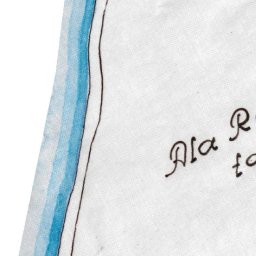 Ala R
ta